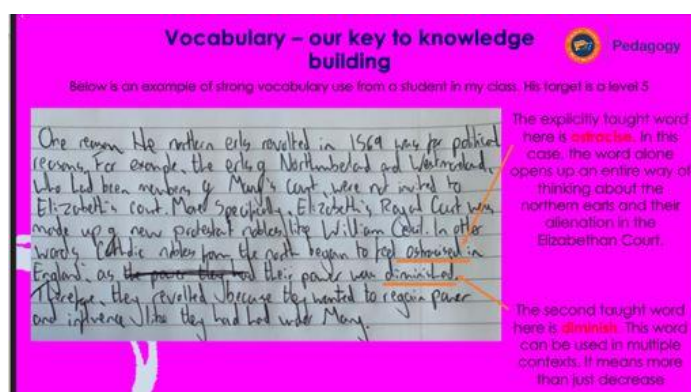 Vocabulary – our key to knowledge
building
Pedagogy
Below is an example of strong vocabulary use from a student in my class. His target is a level 5
One reason the northern erls revolted in 1569 was for political
reasons. For example, the erls of Northumberland and Westmorland,
who had been members of Mary's court, were not invited to
Elizabeth's court. More specifically, Elizabeth's Royal Court was
made up of new protestant nobles like William Cecil. In other
words, Catholic nobles from the north began to feel ostrasised in
England, as the power they had their power was diminished.
Therefore, they revolted because they wanted to regain power
and influence like they had had under Mary.
The explicitly taught word
here is ostracise. In this
case, the word alone
opens up an entire way of
thinking about the
northern earls and their
alienation in the
Elizabethan Court.
The second taught word
here is diminish. This word
can be used in multiple
contexts. It means more
than just decrease